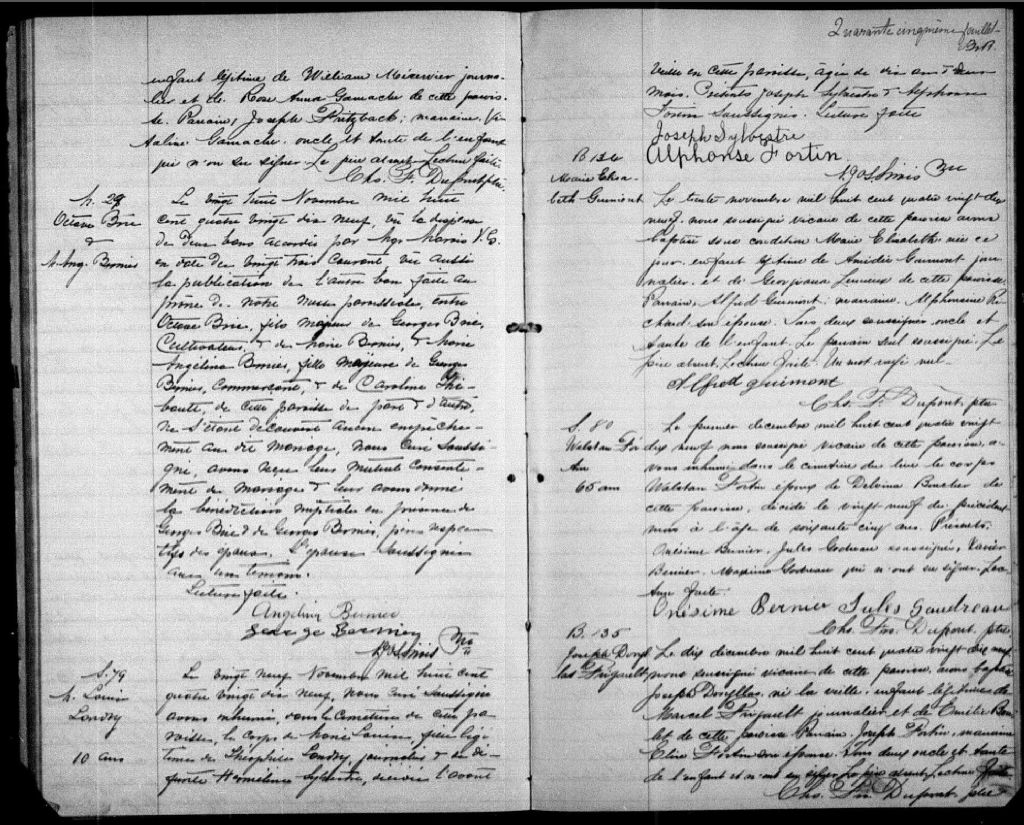 enfant légitime de William Mercier journa-
lier et de Rose Anna Gamache de cette parois-
se. Parrain, Joseph ; marraine,
Gamache, oncle et tante de l'enfant
qui n'on su signer. Le père absent. Lecture faite
Chs. F. Dupont ptre
M. 29
Octave Brie
&
M. Ang. Bernier
Le vingt huit Novembre mil huit
cent quatre vingt dix neuf, vu la dispense
de deux bans accordée par Mgr Marois V. G.
en date du vingt trois courant, vu aussi
la publication de l'autre ban faite au
prône de notre messe paroissiale, entre
Octave Brie, fils majeur de Georges Brie,
Cultivateur, & de Marie Bernier, & Marie
Angelina Bernier, fille majeure de Georges
Bernier, Commerçant, & de Caroline Thi-
bault, de cette paroisse de part & d'autre,
ne s'étant découvert aucun empêche-
ment au dit mariage, nous Curé soussi-
gné, avons reçu leur mutuel consente-
ment de mariage & leur avons donné
la bénédiction nuptiale en présence de
Georges Brie & de Georges Bernier, pères respec-
tifs des époux. L'épouse soussignée
avec un témoin.
Lecture faite.
Angelina Bernier
George Bernier
S. 79
M. Louise
Landry
10 ans
Le vingt neuf Novembre mil huit cent
quatre vingt dix neuf, nous Curé soussigné
avons inhumé, dans le cimetière de cette pa-
roisse, le corps de Marie Louise, fille légi-
time de Théophile Landry, journalier & de dé-
funte Sylvestre, décédée l'avant
Quarante cinquième feuillet
veille en cette paroisse, âgée de dix ans & deux
mois. Présents Joseph Sylvestre & Alphonse
Fortin soussignés. Lecture faite
Joseph Sylvestre
Alphonse Fortin.
B. 134
Marie Elisa-
beth Guimont
Le trente novembre mil huit cent quatre vingt dix
neuf, nous soussigné vicaire de cette paroisse avons
baptisé sous condition Marie Elisabeth, née ce
jour, enfant légitime de Amédée Guimont jour-
nalier, et de Georgiana Lemieux de cette paroisse.
Parrain, Alfred Guimont; marraine, Alphonsine Ri-
chard son épouse. Tous deux soussignés oncle et
tante de l'enfant. Le parrain seul soussigné. Le
père absent. Lecture faite. Un mot rayé nul.
Alfred guimont
Chs. F. Dupont, ptre
S. 80
Walstan For-
tin
65 ans
Le premier decembre mil huit cent quatre vingt
dix neuf nous soussigné vicaire de cette paroisse, a-
vons inhumé dans le cimetière du lieu le corps
Walstan Fortin époux de Delvina Boucher de
cette paroisse, décédé le vingt neuf du précédent
mois à l'âge de soixante cinq ans. Présents,
Onésime Bernier, Jules Godreau soussignés, Xavier
Bernier, Maxime Godreau qui n'ont su signer. Lec-
ture faite.
Onésime Bernier Jules Gaudreau
Chs. Frs. Dupont. ptre.
B. 135
Joseph Doryl-
las Frigault
Le dix decembre mil huit cent quatre vingt dix neuf,
nous soussigné vicaire de cette paroisse, avons baptisé
Joseph Doryllas, né la veille, enfant légitime de
Marcel Frigault journalier et de Emélie Bou-
let de cette paroisse. Parrain, Joseph Fortin, marraine
Elise Fortin son épouse. Tous deux oncle et tante
de l'enfant et n'ont su signer. Le père absent. Lecture faite
Chs. Frs. Dupont. ptre